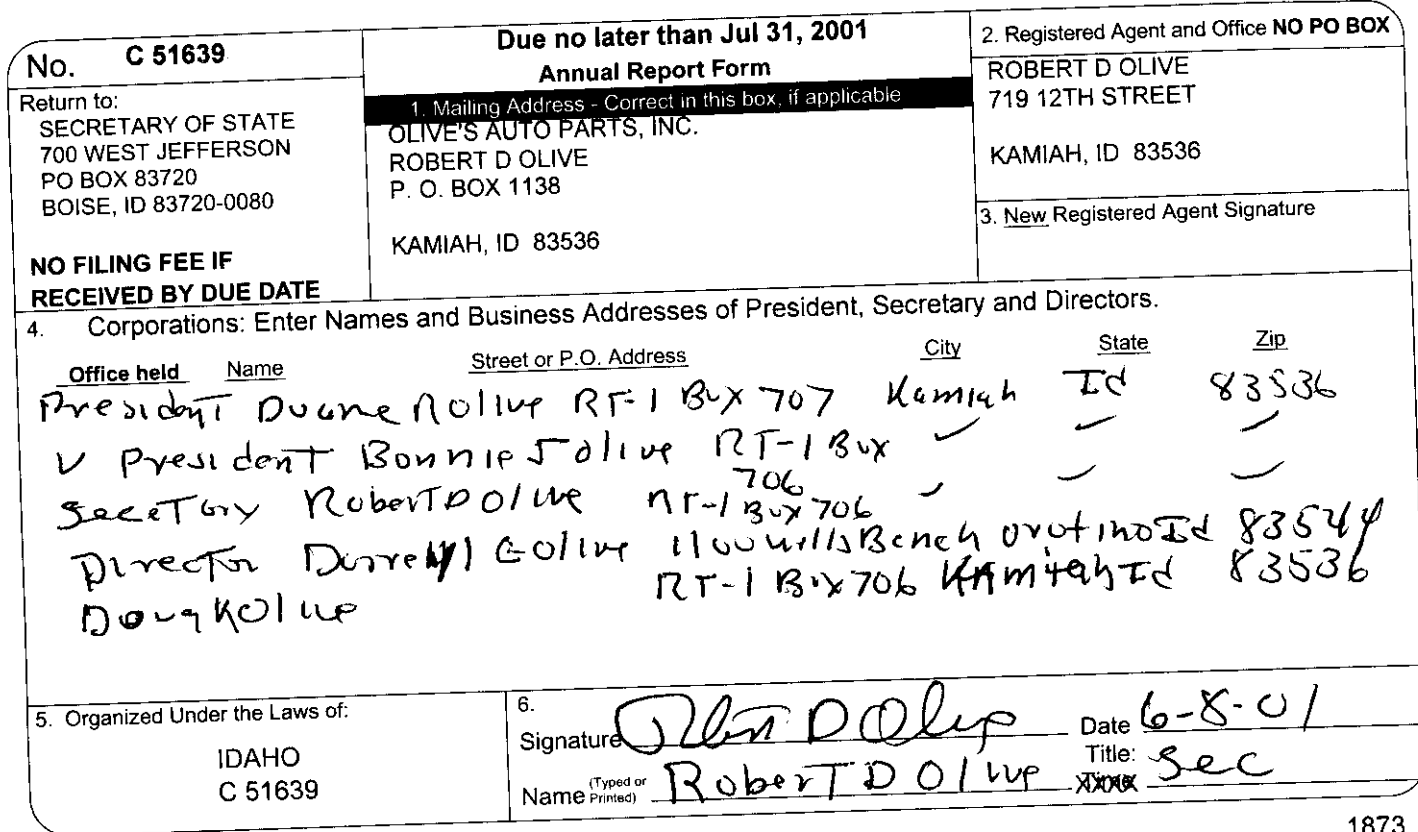 No. C 51639
Return to:
SECRETARY OF STATE
700 WEST JEFFERSON
PO BOX 83720
BOISE, ID 83720-0080
NO FILING FEE IF
RECEIVED BY DUE DATE
Due no later than Jul 31, 2001
Annual Report Form
1. Mailing Address - Correct in this box, if applicable
OLIVE'S AUTO PARTS, INC.
ROBERT D OLIVE
P. O. BOX 1138
KAMIAH, ID 83536
2. Registered Agent and Office NO PO BOX
ROBERT D OLIVE
719 12TH STREET
KAMIAH, ID 83536
3. New Registered Agent Signature
4. Corporations: Enter Names and Business Addresses of President, Secretary and Directors.
Office held Name Street or P.O. Address City State Zip
President Duane R Olive RT-1 Box 707 Kamiah Id 83536
V President Bonnie J Olive RT-1 Box
706
SeceTary Robert D Olive RT-1 Box 706
Director Darrell G Olive 1100 wells Bench orofino Id 83544
RT-1 Box 706 Kamiah Id 83536
Doug K Olive
5. Organized Under the Laws of:
IDAHO
C 51639
6.
Signature Robert D Olive Date 6-8-01
Name (Typed or Printed) Robert D Olive Title: Sec
1873